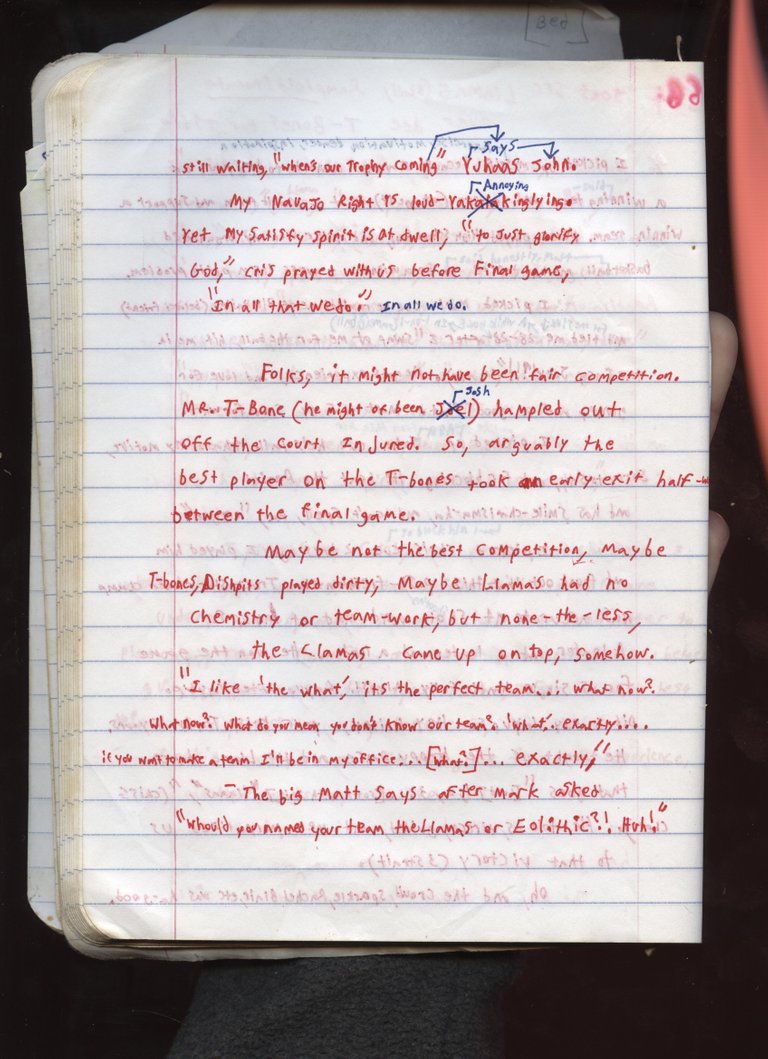 [Bed]
says
still waiting, "when's our Trophy Coming" Yukons John.
Annoying
My Navajo Right is loud-Yakalakinglying.
Yet My Satisfy Spirit is at dwell, "to Just glorify
God," cris prayed with us before Final game,
"In all that we do." In all we do.
Folks, it might not have been fair competition.
Josh
MR. T-Bone (he might of been Joel) hampled out
off the court InJured. So, arguably the
best player on the T-bones took an early exit half-
between the final game.
Maybe not the best competition, Maybe
T-bones, Dishpits played dirty, Maybe Llamas had no
Chemistry or team-work, but none-the-less,
the Llamas came up on top, somehow.
"I like 'the what', its the perfect team... what now?
What now? What do you mean you don't know our team? 'what'.. exactly....
if you want to make a team I'll be in my office... [what?]... exactly,"
- The big Matt says after Mark asked
"Whould you named your team the Llamas or Eolithic?! Huh!"